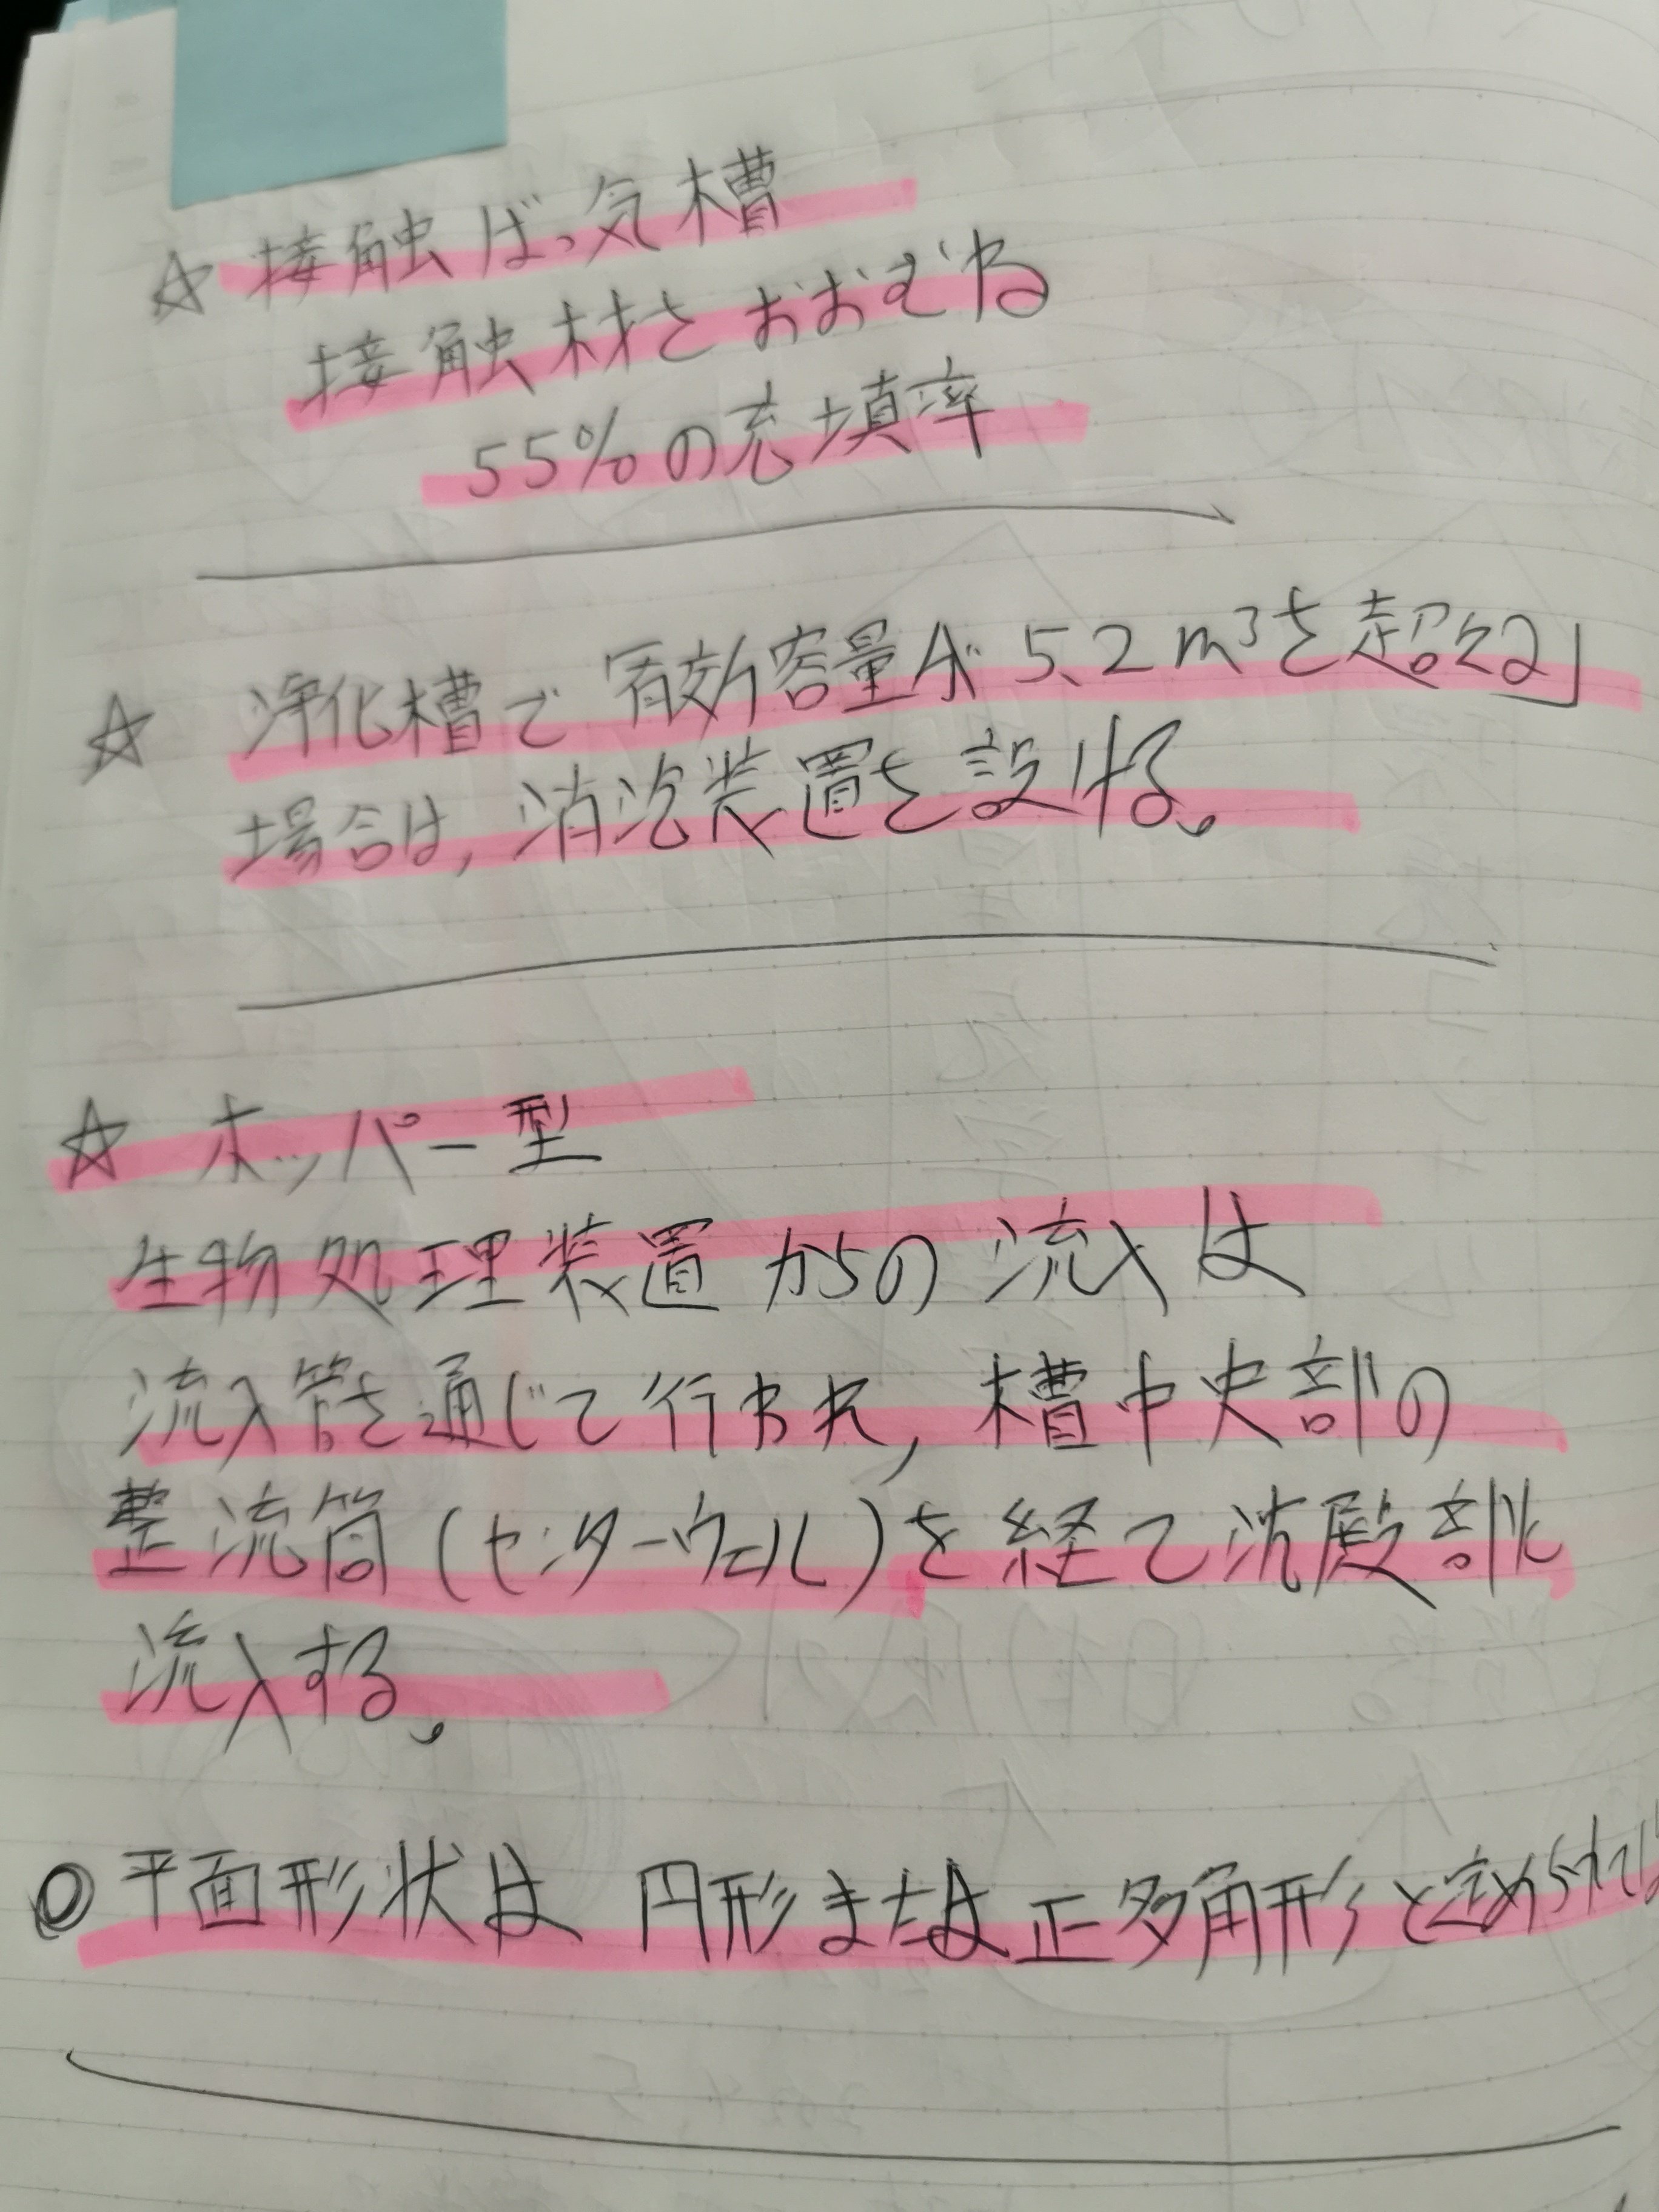 ☆ 接触ばっ気槽
接触材をおおむね
55%の充填率
☆ 浄化槽で有効容量が5.2m³を超える」
場合は,消泡装置を設ける。
☆ ホッパー型
生物処理装置からの流入は
流入管を通じて行われ,槽中央部の
整流筒(センターウェル)を経て沈殿部に
流入する。
◎平面形状は 円形または正多角形と定められてい